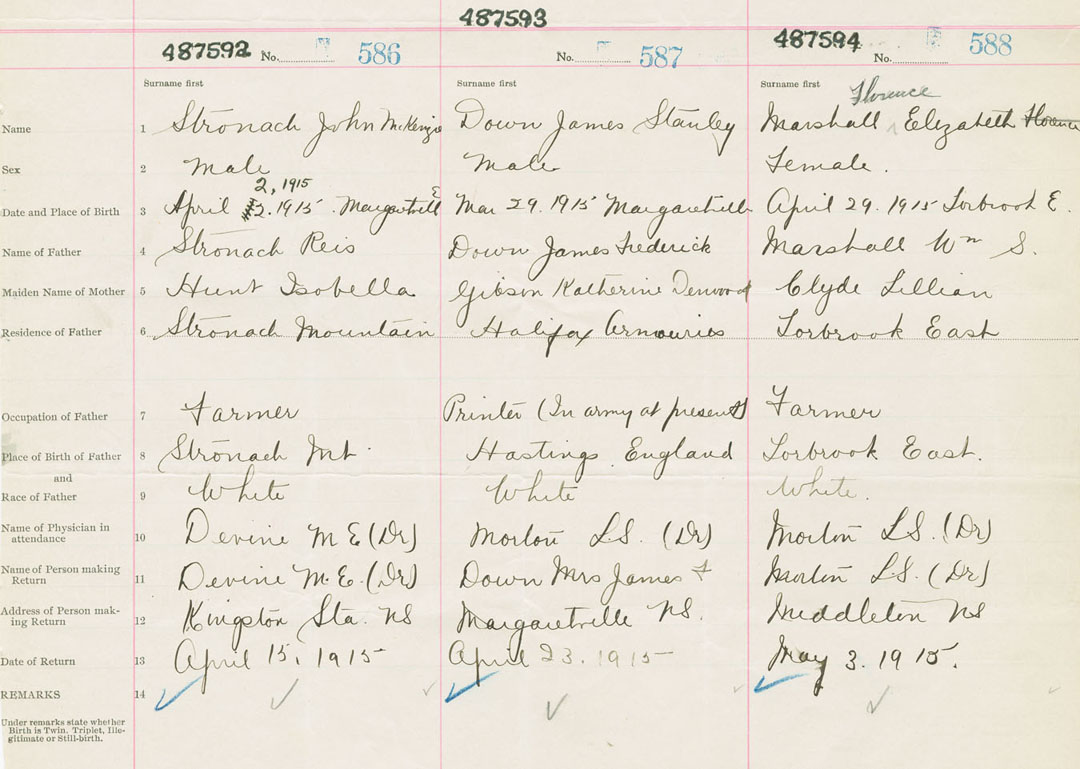 487593
487592 No. 586 No. 587 487594 No. 588
Surname first Surname first Surname first
Florence
Name 1 Stronach John McKenzie Down James Stanley Marshall ^ Elizabeth Florence
Sex 2 Male Male Female.
2, 1915
Date and Place of Birth 3 April 2. 1915. Margaretvill E Mar 29. 1915 Margaretville April 29. 1915 Torbrook E.
Name of Father 4 Stronach Reis Down James Frederick Marshall Wm S.
Maiden Name of Mother 5 Hunt Isobella Gibson Katherine Denwood Clyde Lillian
Residence of Father 6 Stronach Mountain Halifax Armouries Torbrook East
Occupation of Father 7 Farmer Printer (In army at present) Farmer
Place of Birth of Father 8 Stronach Mt. Hastings England Torbrook East.
and
Race of Father 9 White White White.
Name of Physician in
attendance 10 Devine M E (Dr) Morton L.S. (Dr) Morton L.S. (Dr)
Name of Person making
Return 11 Devine M.E. (Dr) Down Mrs James F Morton L.S. (Dr)
Address of Person mak-
ing Return 12 Kingston Sta. NS Margaretville NS. Middleton NS
Date of Return 13 April 15, 1915 April 23. 1915 May 3. 1915.
REMARKS 14
Under remarks state whether
Birth is Twin. Triplet, Ille-
gitimate or Still-birth.